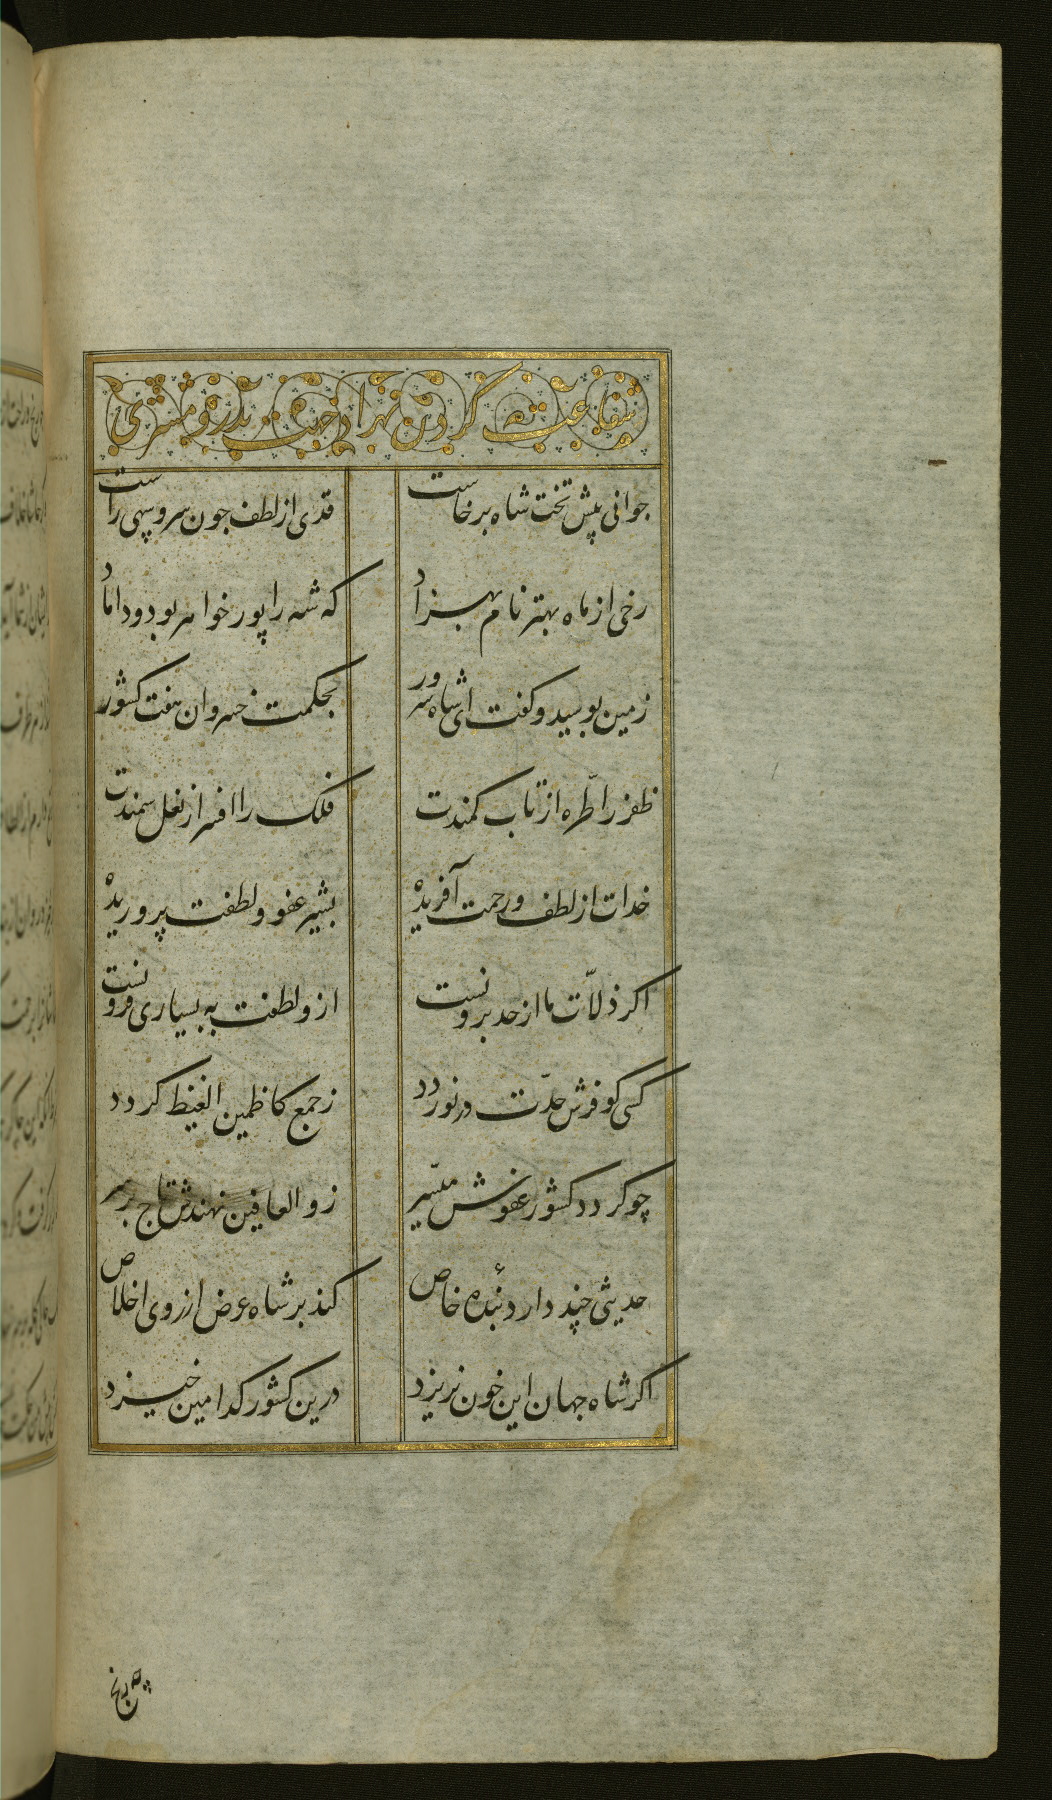 شفاعت کردن بهزاد جهت بدر و مشتری
جوانی پیش تخت شاه برخاست
قدی از لطف جون سرو سهی راست
رخی از ماه بهتر نام بهزاد
که شه را پور خواهر بود و داماد
زمین بوسید و کفت ای شاه سرور
بحکمت خسروان هفت کشور
ظفر را طرّه از تاب کمندت
فلک را افسر از نعل سمندت
خدات از لطف و رحمت آفریده
بشیر عفو و لطفت پروریده
اکر ذلّات ما از حد برونست
ازو لطفت به بسیاری فزونست
کسی کو فرش حدّت در نوردد
ز جمع کاظمین الغیظ کردد
چو کردد کشور عفوش میسّر
ز و العافین نهندش تاج بر سر
حدیثی چند دارد بندهٔ خاص
کند بر شاه عرض از روی اخلاص
اکر شاه جهان این خون نریزد
درین کشور کدامین خیزد